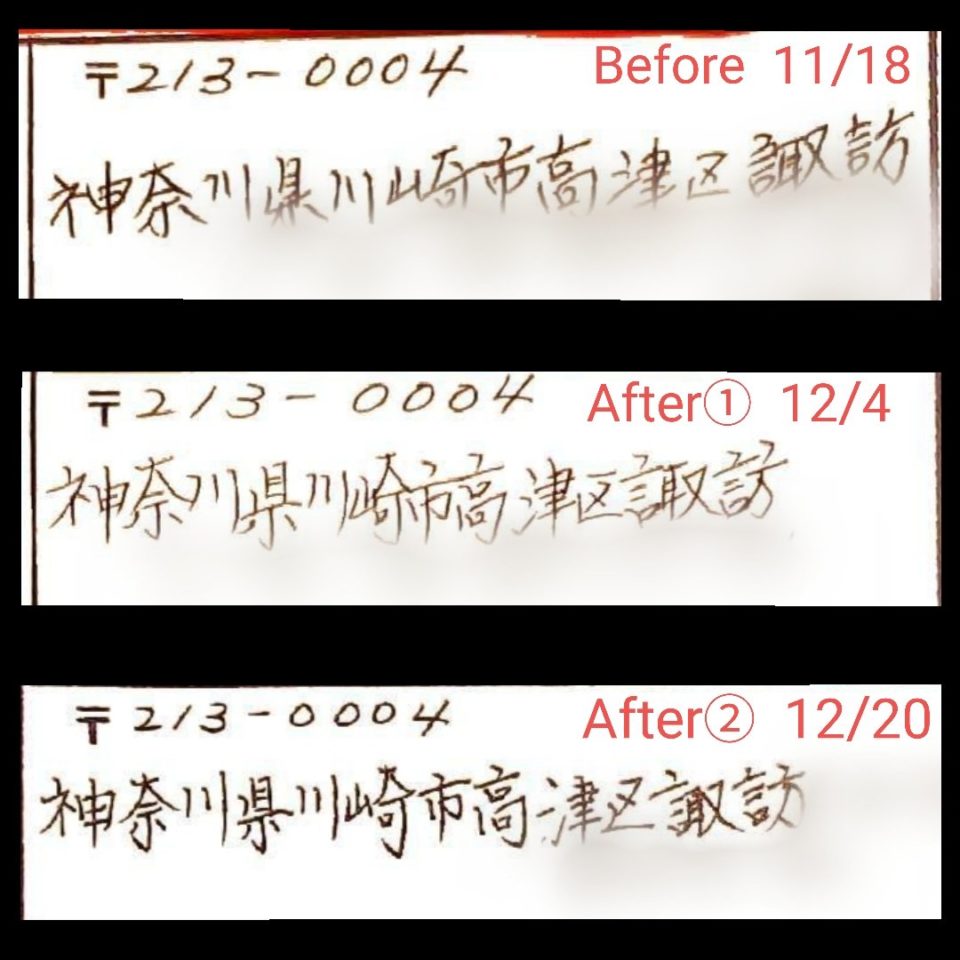 〒213-0004 Before 11/18
神奈川県川崎市高津区諏訪
〒213-0004 After① 12/4
神奈川県川崎市高津区諏訪
〒213-0004 After② 12/20
神奈川県川崎市高津区諏訪